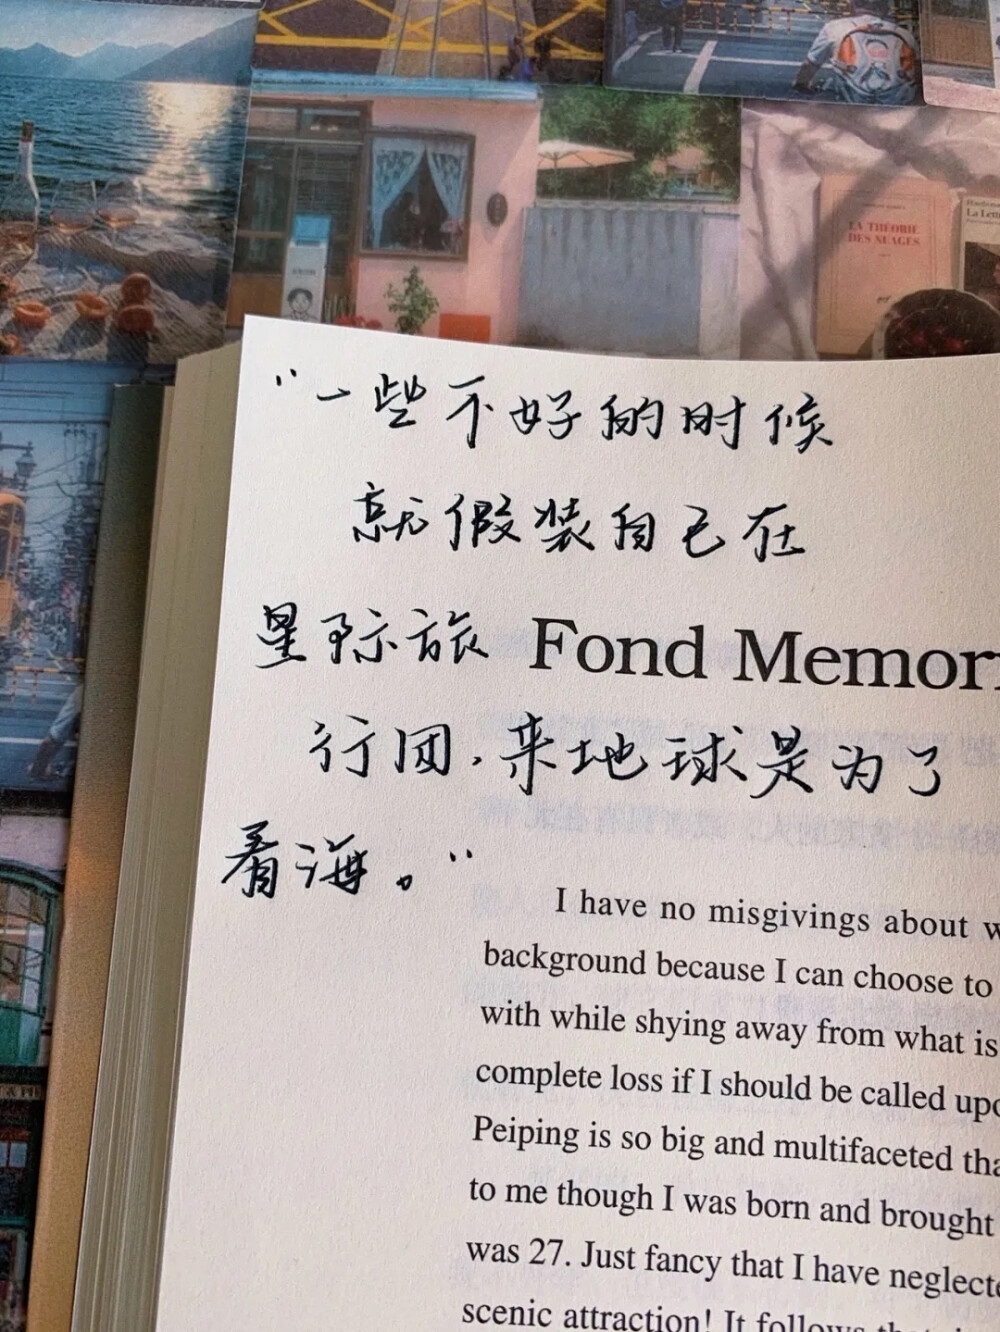 LA THÉORIE
DES NUAGES
"一些不好的时候
就假装自己在
星际旅
Fond Memor
行团，来地球是为了
看海。"
I have no misgivings about w
background because I can choose to
with while shying away from what is
complete loss if I should be called upo
Peiping is so big and multifaceted tha
to me though I was born and brought
was 27. Just fancy that I have neglecte
scenic attraction! It follows